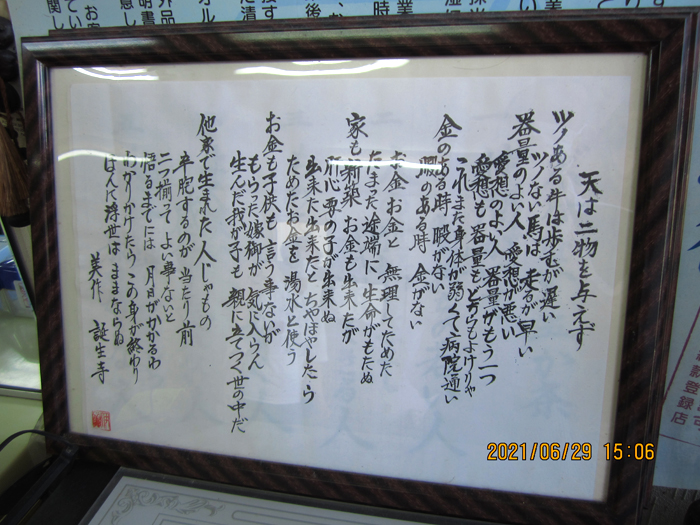 天は二物を与えず
ツノある牛は歩むが遅い
ツノない馬は走るが早い
器量のよい人 愛想が悪い
愛想のよい人 器量がもう一つ
愛想も器量もどちらもよけりゃ
これまた身体が弱くて病院通い
金のある時 暇がない
暇のある時 金がない
お金お金と 無理してためた
たまった途端に 生命がもたぬ
家も新築 お金も出来たが
肝心要の子が出来ぬ
出来た出来たと ちやほやしたら
ためたお金を 湯水と使う
お金も子供も 言う事ないが
もらった嫁御が 気に入らん
生んだ我が子も 親に立てつく世の中だ
他家で生まれた人じゃもの
辛抱するのが 当たり前
二つ揃って よい事ないと
悟るまでには 月日がかかるわ
わかりかけたら この身が終わり
ほんに浮世は ままならぬ
美作 誕生寺
2021/06/29 15:06
登録店